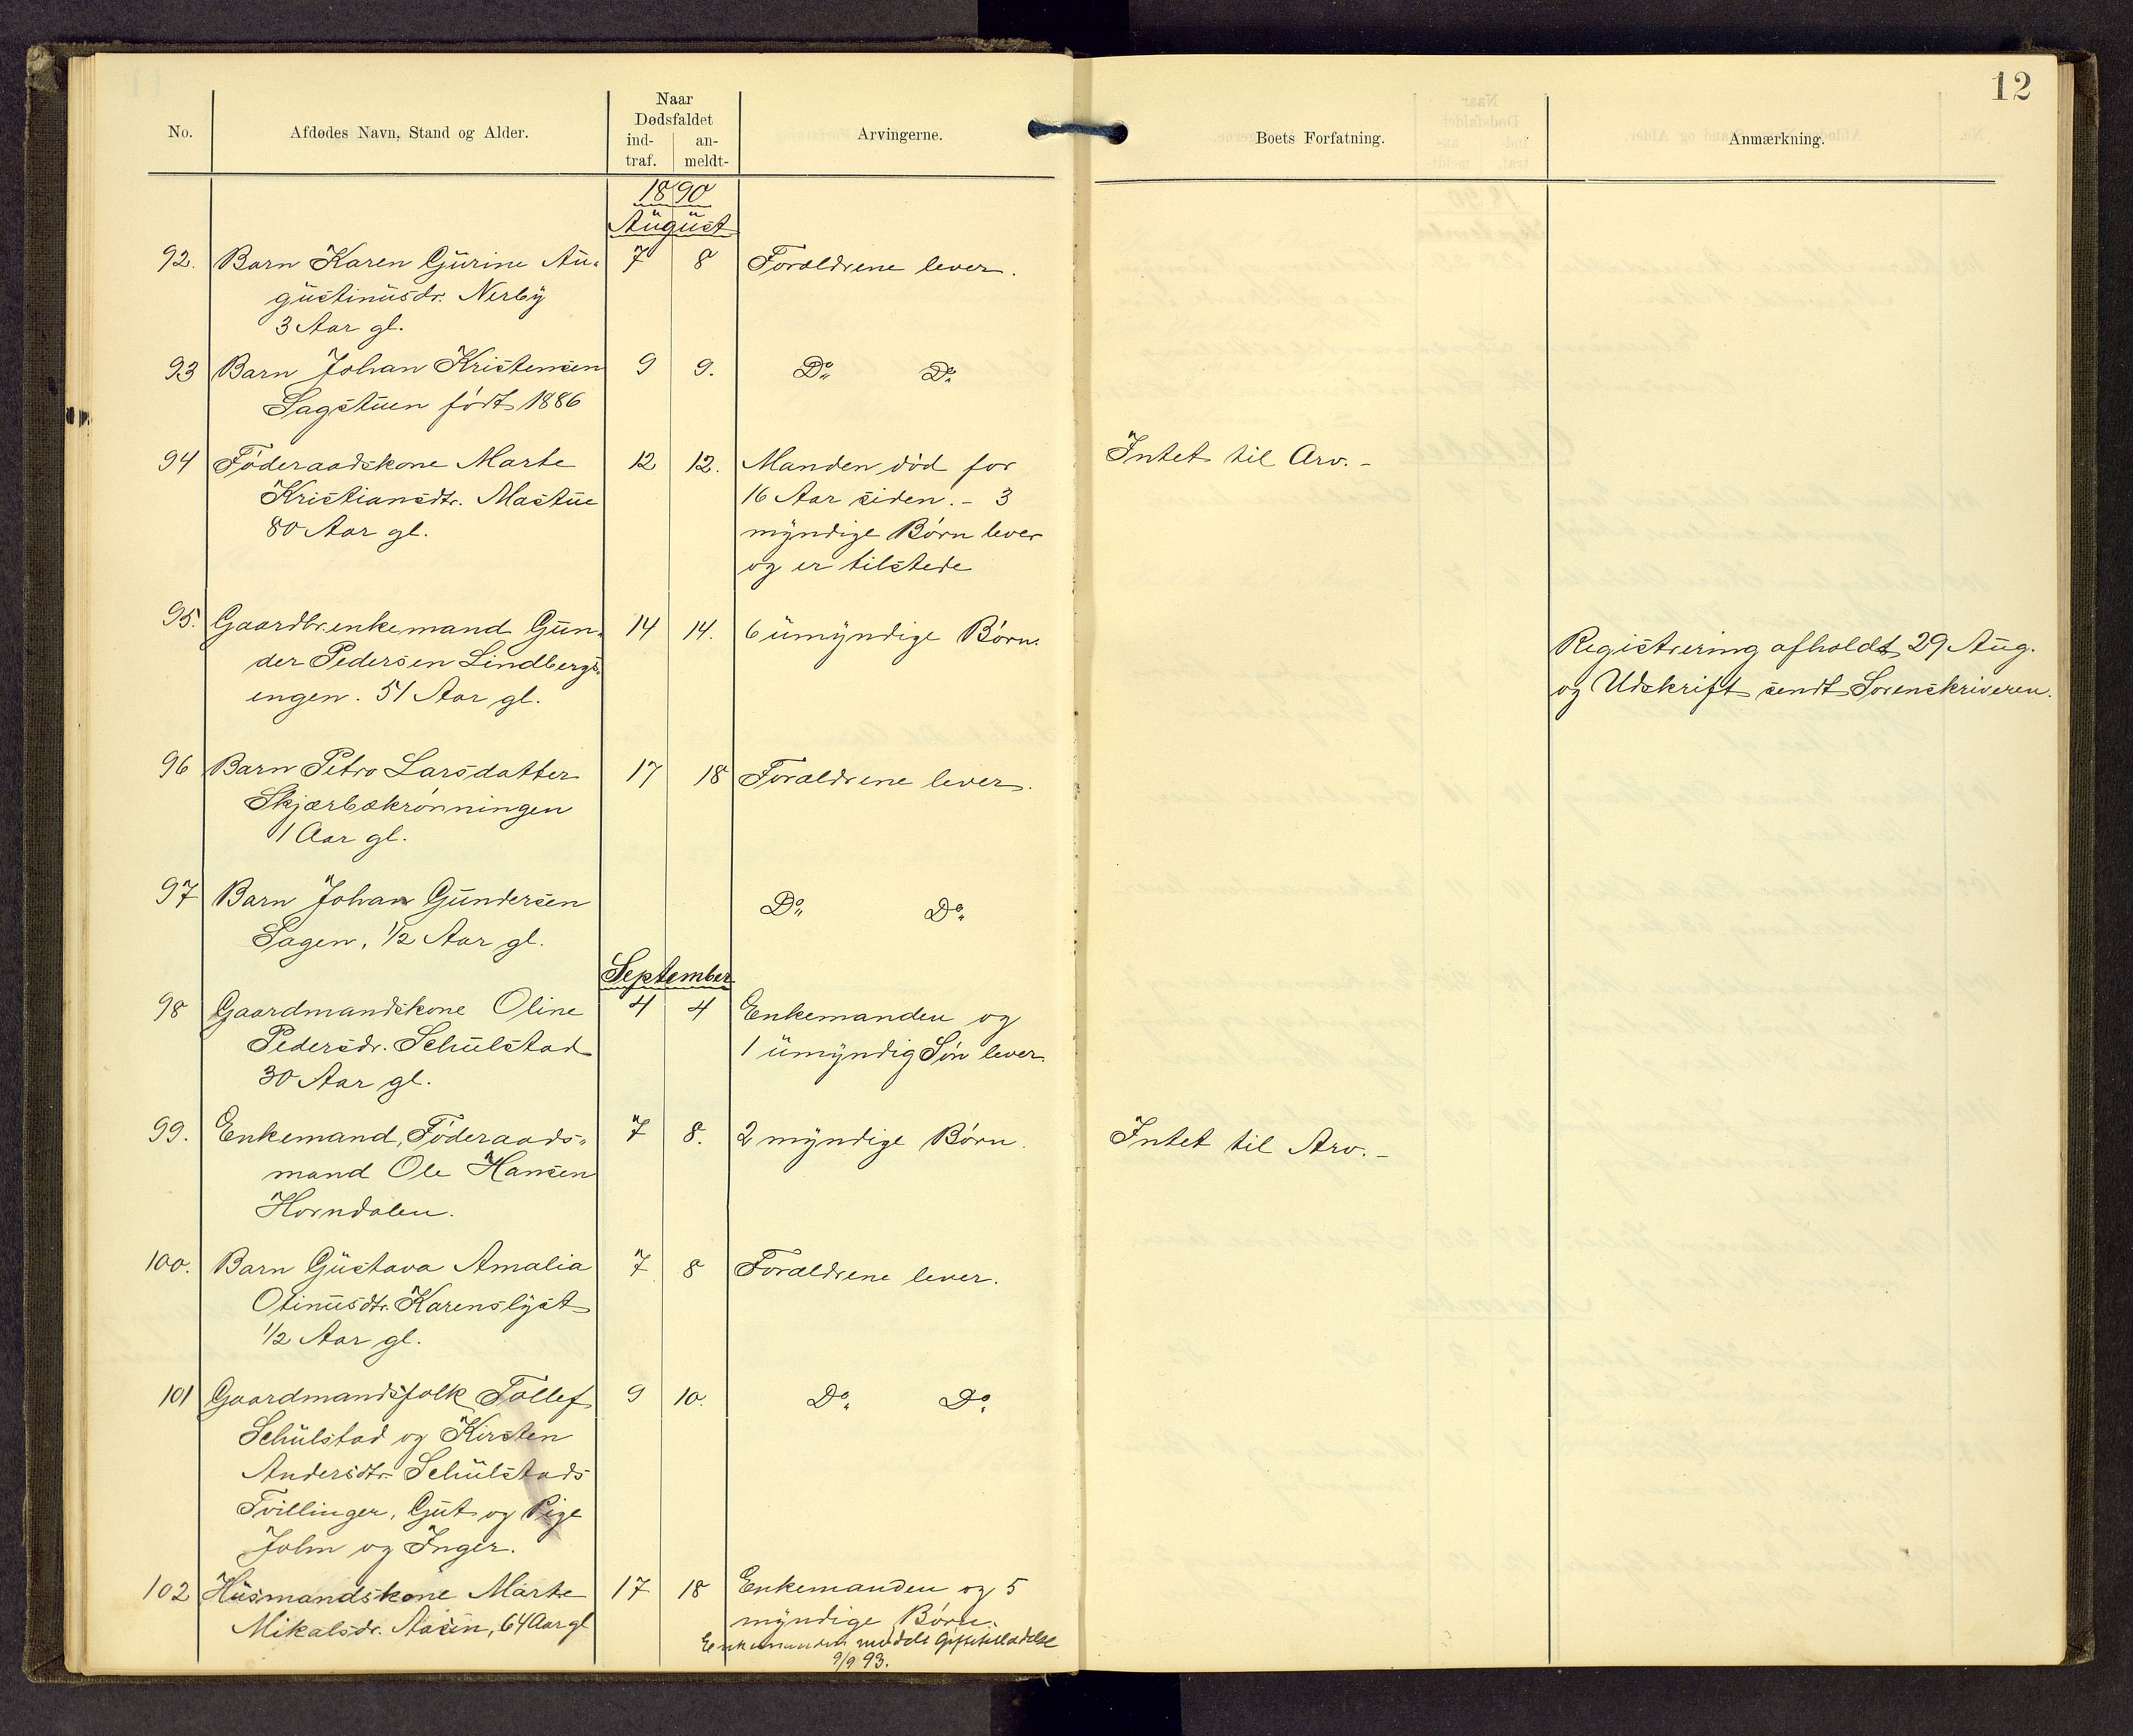 12
No.
Afdødes Navn, Stand og Alder.
Naar
Dødsfaldet
ind-
traf.
an-
meldt-
Arvingerne.
Boets Forfatning.
Anmærkning.
1890
August
92. Barn Karen Gurine Au- 7 8 Forældrene lever.
gustinusdr. Nerby
3 Aar gl.
93 Barn Johan Kristensen 9 9. Do Do
Sagstuen født 1886
94 Føderaadskone Marte 12 12. Manden død for Intet til Arv. -
Kristiansdtr. Mastue 16 Aar siden. - 3
80 Aar gl. myndige Børn lever
og er tilstede
95. Gaardbr.enkemand Gun- 14 14. 6 umyndige Børn. Registrering afholdt 29 Aug.
der Pedersen Lindbergs- og Udskrift sendt Sorenskriveren.
engen. 51 Aar gl.
96 Barn Petra Larsdatter 17 18 Forældrene lever.
Skjærbækrønningen
1 Aar gl.
97 Barn Johan Gundersen Do Do
Sagen, 1/2 Aar gl.
September
98 Gaardmandskone Oline 4 4 Enkemanden og
Pedersdr. Schulstad 1 umyndig Søn lever.
30 Aar gl.
99. Enkemand, Føderaads- 7 8. 2 myndige Børn. Intet til Arv. -
mand Ole Hansen
Horndalen.
100. Barn Gustava Amalia 7 8 Forældrene lever.
Otinusdtr. Karenslyst
1/2 Aar gl.
101 Gaardmandsfolk Tollef 9 10. Do Do
Schulstad og Kirsten
Andersdtr. Schulstads
Tvillinger, Gut og Pige
John og Inger.
102 Husmandskone Marte 17 18 Enkemanden og 5
Mikalsdr. Aasen, 64 Aar gl myndige Børn.
Enkemanden meddelt Giftetilladelse
9/9 93.